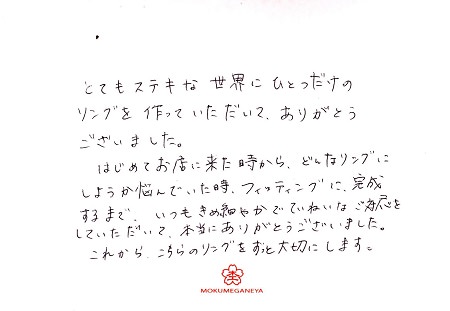 とてもステキな世界にひとつだけの
リングを作っていただいて、ありがとう
ございました。
はじめてお店に来た時から、どんなリングに
しようか悩んでいた時、フィッティングに、完成
するまで、いつもきめ細やかでていねいなご対応を
していただいて、本当にありがとうございました。
これから、こちらのリングをずっと大切にします。
MOKUMEGANEYA